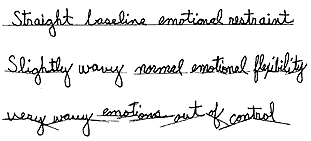 Straight baseline emotional restraint
Slightly wavy normal emotional flexibility
very wavy emotions out of control